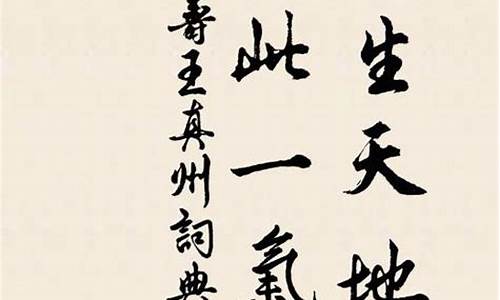 生天地
此一氣
壽王真州詞典